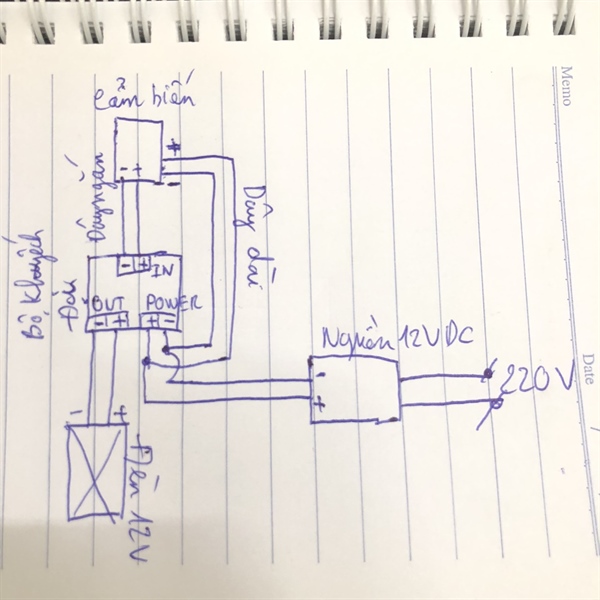 Memo
Cảm biến
- +
+
-
Dây ngắn
Dây dài
- + IN
Bộ khuyếch
Đại
OUT POWER
- + + -
Nguồn 12VDC
-
+
220V
- +
Đèn 12V
Date